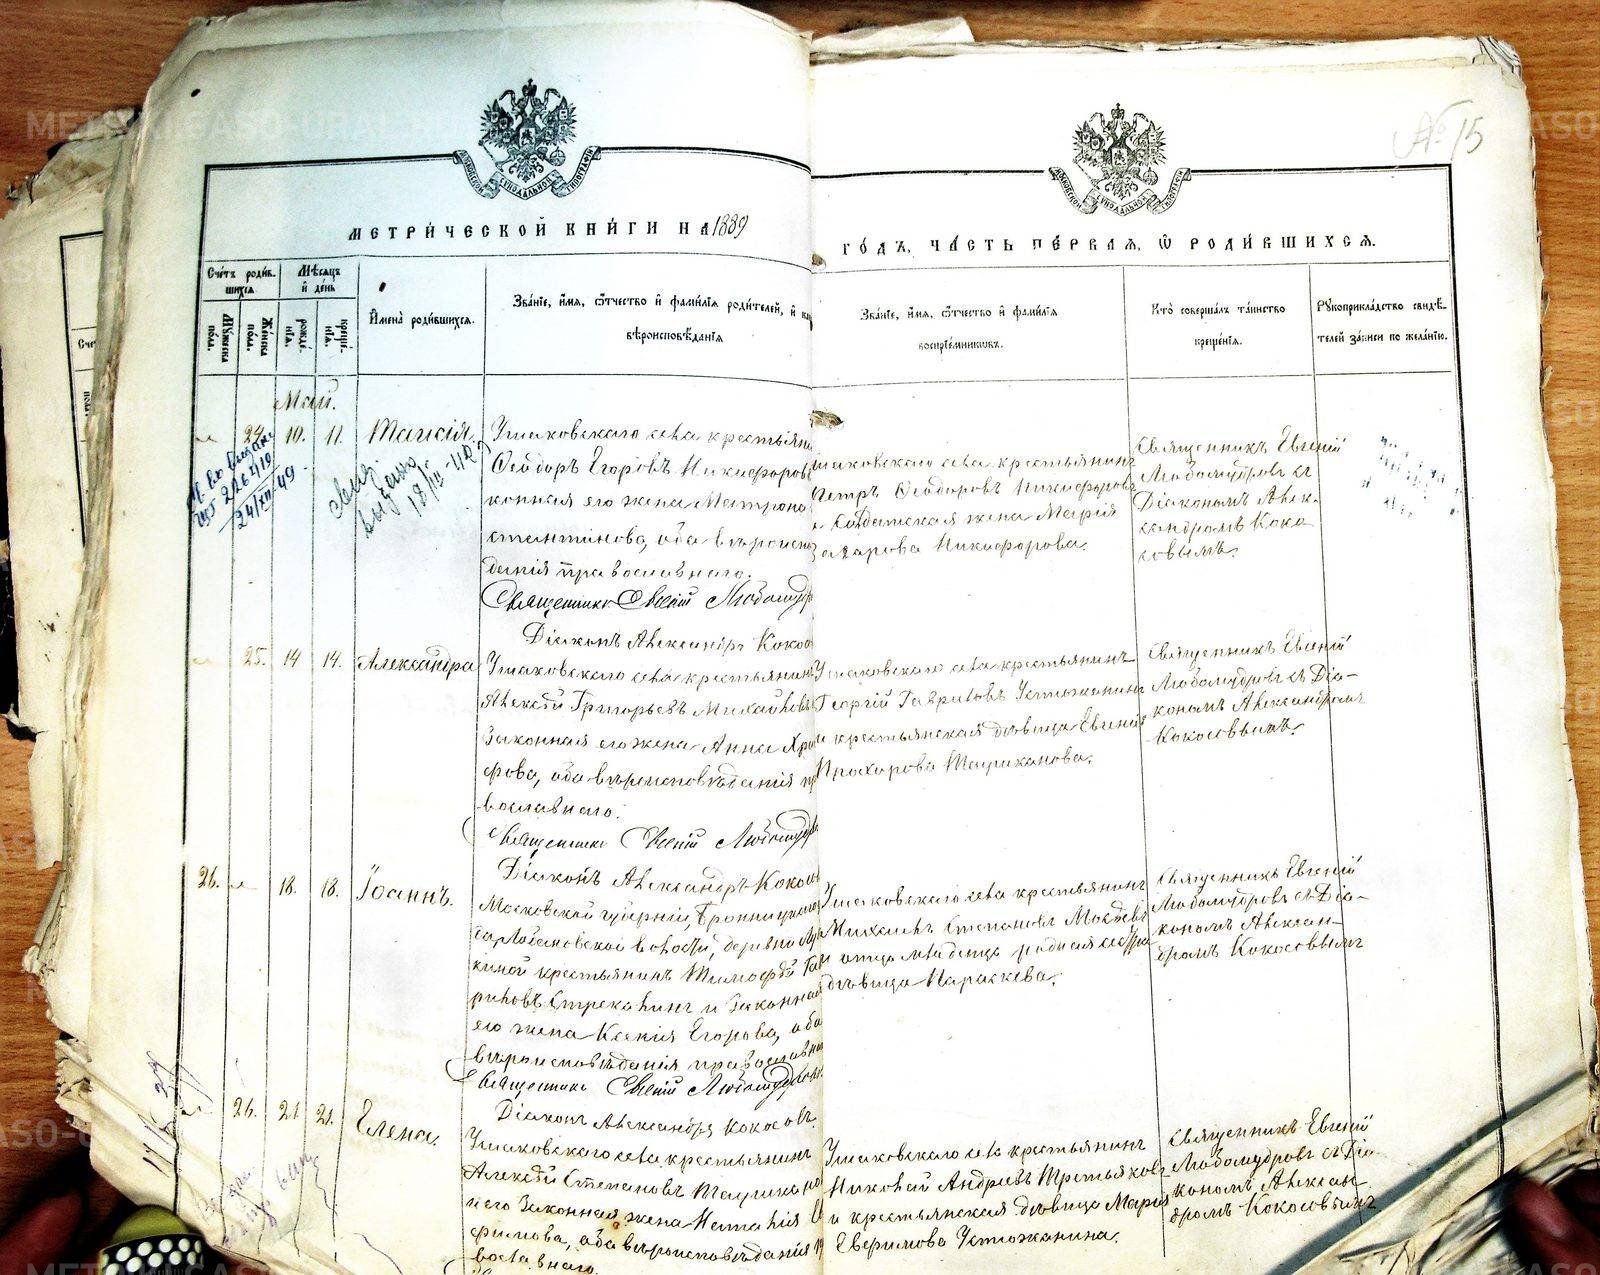 МЕТРИ́ЧЕСКОЙ КНИ́ГИ НА 1889
ГО́ДЪ, ЧА́СТЬ ПЕ́РВАЯ, Ѽ РОДИ́ВШИХСЯ.
№ 15
Сче́тъ роди́в-
шихся
Мѣ́сяцъ
и де́нь
Мꙋжеска
пола.
Женска
пола.
рожде́-
нїя.
креще́-
нїя.
Имена̀ роди́вшихся.
Зва́нїе, и́мя, ѻ́тчество и фами́лїя роди́телей, и
вѣроисповѣ́данїя
Зва́нїе, и́мя, ѻ́тчество и фами́лїя
воспрїе́мниковъ.
Кто̀ соверша́лъ та́инство
креще́нїя.
Рꙋкоприкла́дство свидѣ́-
телей за́писи по жела́нїю.
Май.
24. 10. 11. Таисія.
Ушаковскаго села крестьянинъ
Ѳеодоръ Егоровъ Никифоровъ
конная его жена Матрона
стантинова, оба вѣроиспо-
данія православнаго.
Священникъ Евгеній Любомудр
Діаконъ Александръ Кокос
Ушаковскаго села крестьянинъ
Петръ Ѳеодоровъ Никифоровъ
и солдатская жена Марія
Захарова Никифорова.
Священникъ Евгеній
Любомудровъ съ
Діакономъ Алек-
сандромъ Коко
совымъ.
24/XII 49
выдано
25. 14 14. Александра
Ушаковскаго села крестьянинъ
Алексѣй Григорьевъ Михайловъ
Законная его жена Анна Хри
фова, оба вѣроисповѣданія пра
вославнаго.
Священникъ Евгеній Любомудр
Діаконъ Александръ Кокосо
Ушаковскаго села крестьянинъ
Георгій Гавриловъ Устюжанинъ
и крестьянская дѣвица Евгенія
Прохорова Таушканова.
Священникъ Евгеній
Любомудровъ съ Діа-
кономъ Александромъ
Кокосовымъ.
26. 18. 18. Іоаннъ.
Московской губерніи, Бронницкаго
Лобановской волости, деревни
киной крестьянинъ Тимофей Гав
риловъ Стрекалинъ и Законная
его жена Ксенія Егорова, оба
вѣроисповѣданія православна
Священникъ Евгеній Любомудровъ
Діаконъ Александръ Кокосовъ.
Ушаковскаго села крестьянинъ
Михаилъ Степановъ
и отца младенца родная сестра
дѣвица Параскева.
Священникъ Евгеній
Любомудровъ съ Діа-
кономъ Алексан-
дромъ Кокосовымъ
26. 21 21. Елена.
Ушаковскаго села крестьянинъ
Алексѣй Степановъ Таушкано
и его Законная жена Наталія
фимова, оба вѣроисповѣданія
вославнаго.
Ушаковскаго села крестьянинъ
Николай Андреевъ Третьяковъ
и крестьянская дѣвица Марія
Евфимова Устюжанина.
Священникъ Евгеній
Любомудровъ съ Діа
кономъ Алексан
дромъ Кокосовымъ